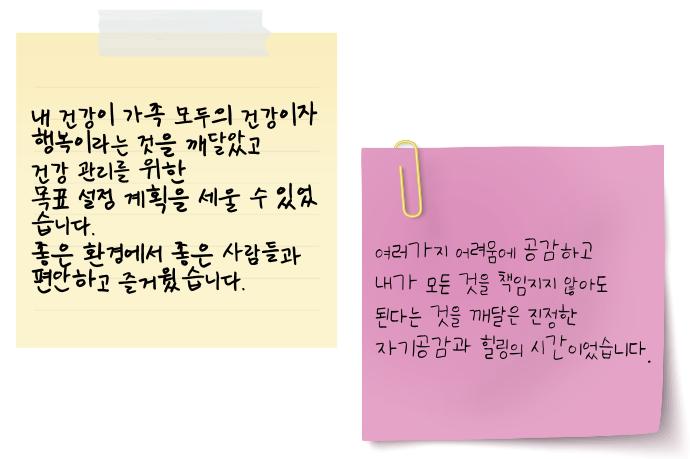 내 건강이 가족 모두의 건강이자
행복이라는 것을 깨달았고
건강 관리를 위한
목표 설정 계획을 세울 수 있었
습니다.
좋은 환경에서 좋은 사람들과
편안하고 즐거웠습니다.
여러가지 어려움에 공감하고
내가 모든 것을 책임지지 않아도
된다는 것을 깨달은 진정한
자기공감과 힐링의 시간이었습니다.